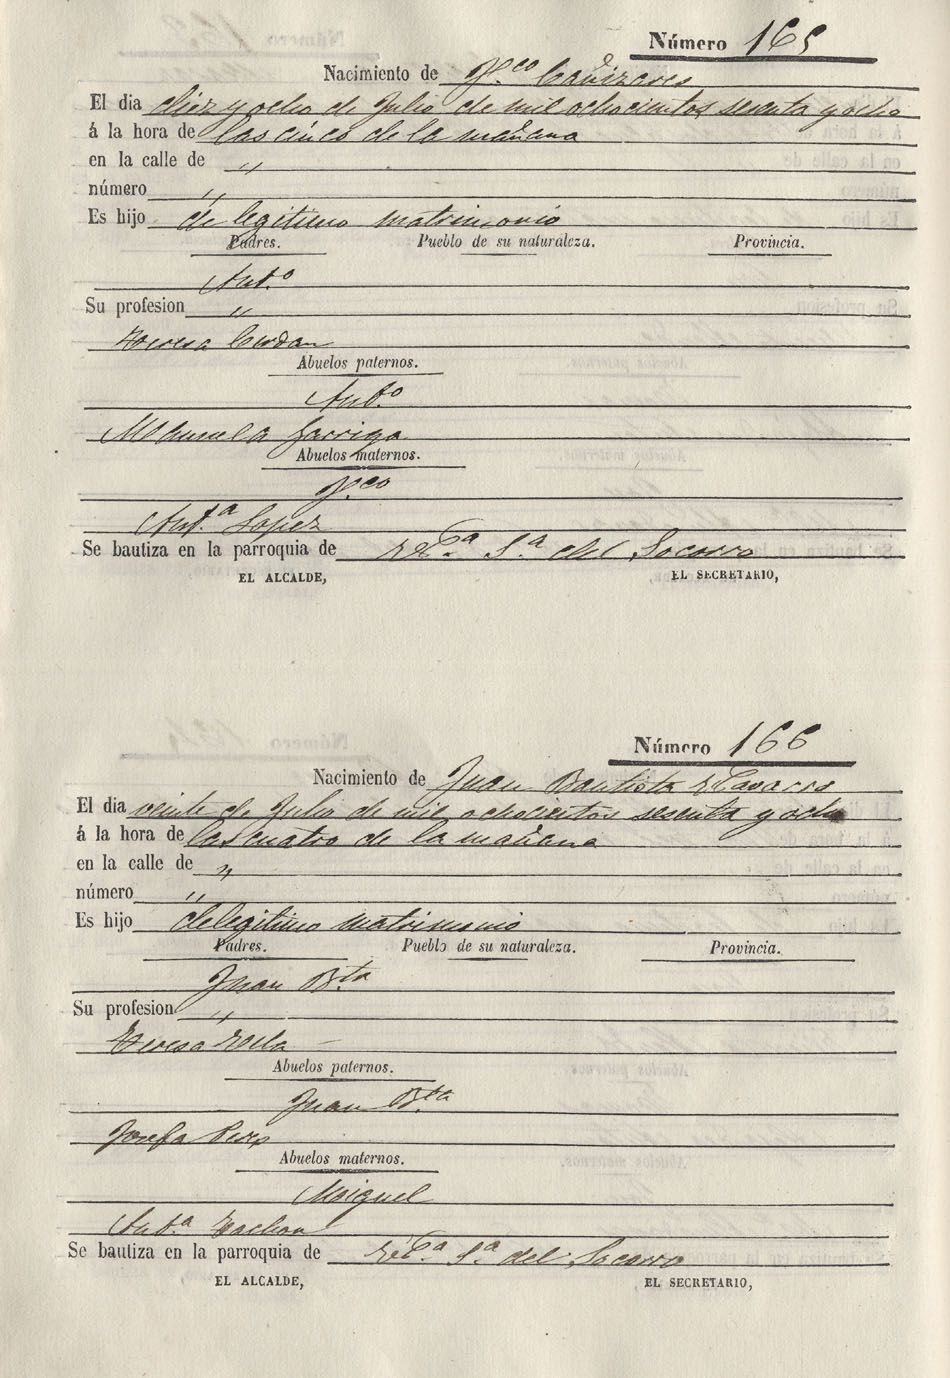 Número 165
Nacimiento de Fco Cañizares
El dia diez y ocho de Julio de mil ochocientos sesenta y ocho
á la hora de las cinco de la mañana
en la calle de "
número "
Es hijo de legitimo matrimonio
Padres. Pueblo de su naturaleza. Provincia.
Anto
Su profesion "
Teresa Cerdan
Abuelos paternos.
Anto
Manuela Garrigo
Abuelos maternos.
Fco
Anta Lopez
Se bautiza en la parroquia de Sa del Socorro
EL ALCALDE, EL SECRETARIO,
Número 166
Nacimiento de Juan Bautista Navarro
El dia veinte de Julio de mil ochocientos sesenta y ocho
á la hora de las cuatro de la mañana
en la calle de "
número "
Es hijo de legitimo matrimonio
Padres. Pueblo de su naturaleza. Provincia.
Juan Bta
Su profesion "
Teresa
Abuelos paternos.
Juan Bta
Josefa Perez
Abuelos maternos.
Miguel
Anta
Se bautiza en la parroquia de Sa del Socorro
EL ALCALDE, EL SECRETARIO,